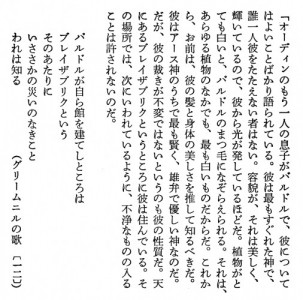 「オーディンのもう一人の息子がバルドルで、彼について
はよいことばかり語られている。彼は最もすぐれた神で、
誰一人彼をたたえない者はない。容貌が、それは美しく、
輝いているので、彼から光が発しているほどだ。植物がと
ても白いと、バルドルのまつ毛になぞらえられる。それは、
あらゆる植物のなかでも、最も白いものだからだ。これか
ら、お前は、彼の髪と身体の美しさを推して知るべきだ。
彼はアース神のうちで最も賢く、雄弁で優しい神なのだ。
だが、彼の裁きが不変ではないというのも彼の性質だ。天
にあるブレイザブリクというところに彼は住んでいる。そ
の場所では、次にいわれているように、不浄なものの入る
ことは許されないのだ。
バルドルが自ら館を建てしところは
ブレイザブリクという
そのあたりに
いささかの災いのなきこと
われは知る
(グリームニルの歌〔一二〕)